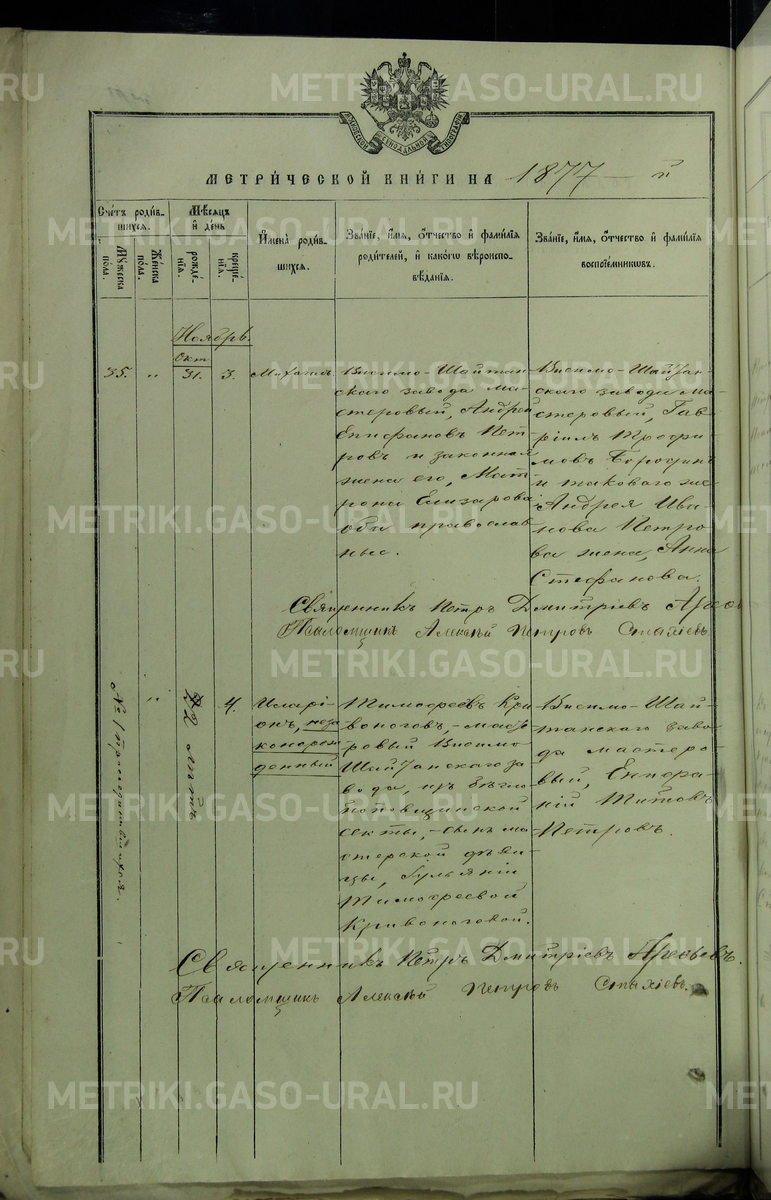 МОСКОВСКОЙ СѴНОДАЛЬНОЙ ТИПОГРАФІИ
МЕТРИ́ЧЕСКОЙ КНИ́ГИ НА 1877 – й
Сче́тъ роди́в-
шихся.
Мꙋ́жеска
по́ла.
Же́нска
по́ла.
Мѣ́сяцъ
и҆ де́нь
рожде́-
нїя.
креще́-
нїя.
И҆мена̀ роди́в-
шихся.
Зва́нїе, и҆́мя, ѻ҆́тчество и҆ фами́лїя
роди́телей, и҆ како́гѡ вѣроиспо-
вѣ́данїя.
Зва́нїе, и҆́мя, ѻ҆́тчество и҆ фами́лїя
воспрїе́мникѡвъ.
Ноябрь.
Окт
35. " 31. 3. Михаилъ
Висимо-Шайтан-
скаго завода ма-
стеровый, Андрей
Епифановъ Пет-
ровъ и законная
жена его, Мат-
рона Елизарова;
оба православ-
ные.
Висимо-Шайтан-
скаго завода ма-
стеровый, Гав-
ріилъ Трофи-
мовъ Бородинъ
и таковаго же
Андрея Ива-
нова Петро-
ва жена, Анна
Стефанова.
Священникъ Петръ Дмитріевъ
Псаломщикъ Алексѣй Петровъ Стахіевъ
№ 1 присоединившихся.
"
22 лѣтъ
4.
Иларі-
онъ, неза
конорож
денный
Тимофеевъ Кри
воноговъ, – масте
ровый Висимо
Шайтанскаго за
вода, изъ бѣгло
поповщинской
секты, – сынъ ма
стерской дѣви-
цы, Іульяніи
Тимофеевой
Кривоноговой.
Висимо-Шай-
танскаго заво-
да мастеро-
вый, Епифа-
ній Титовъ
Петровъ.
Священникъ Петръ Дмитріевъ Арефьевъ.
Псаломщикъ Алексѣй Петровъ Стахіевъ.
METRIKI.GASO-URAL.RU